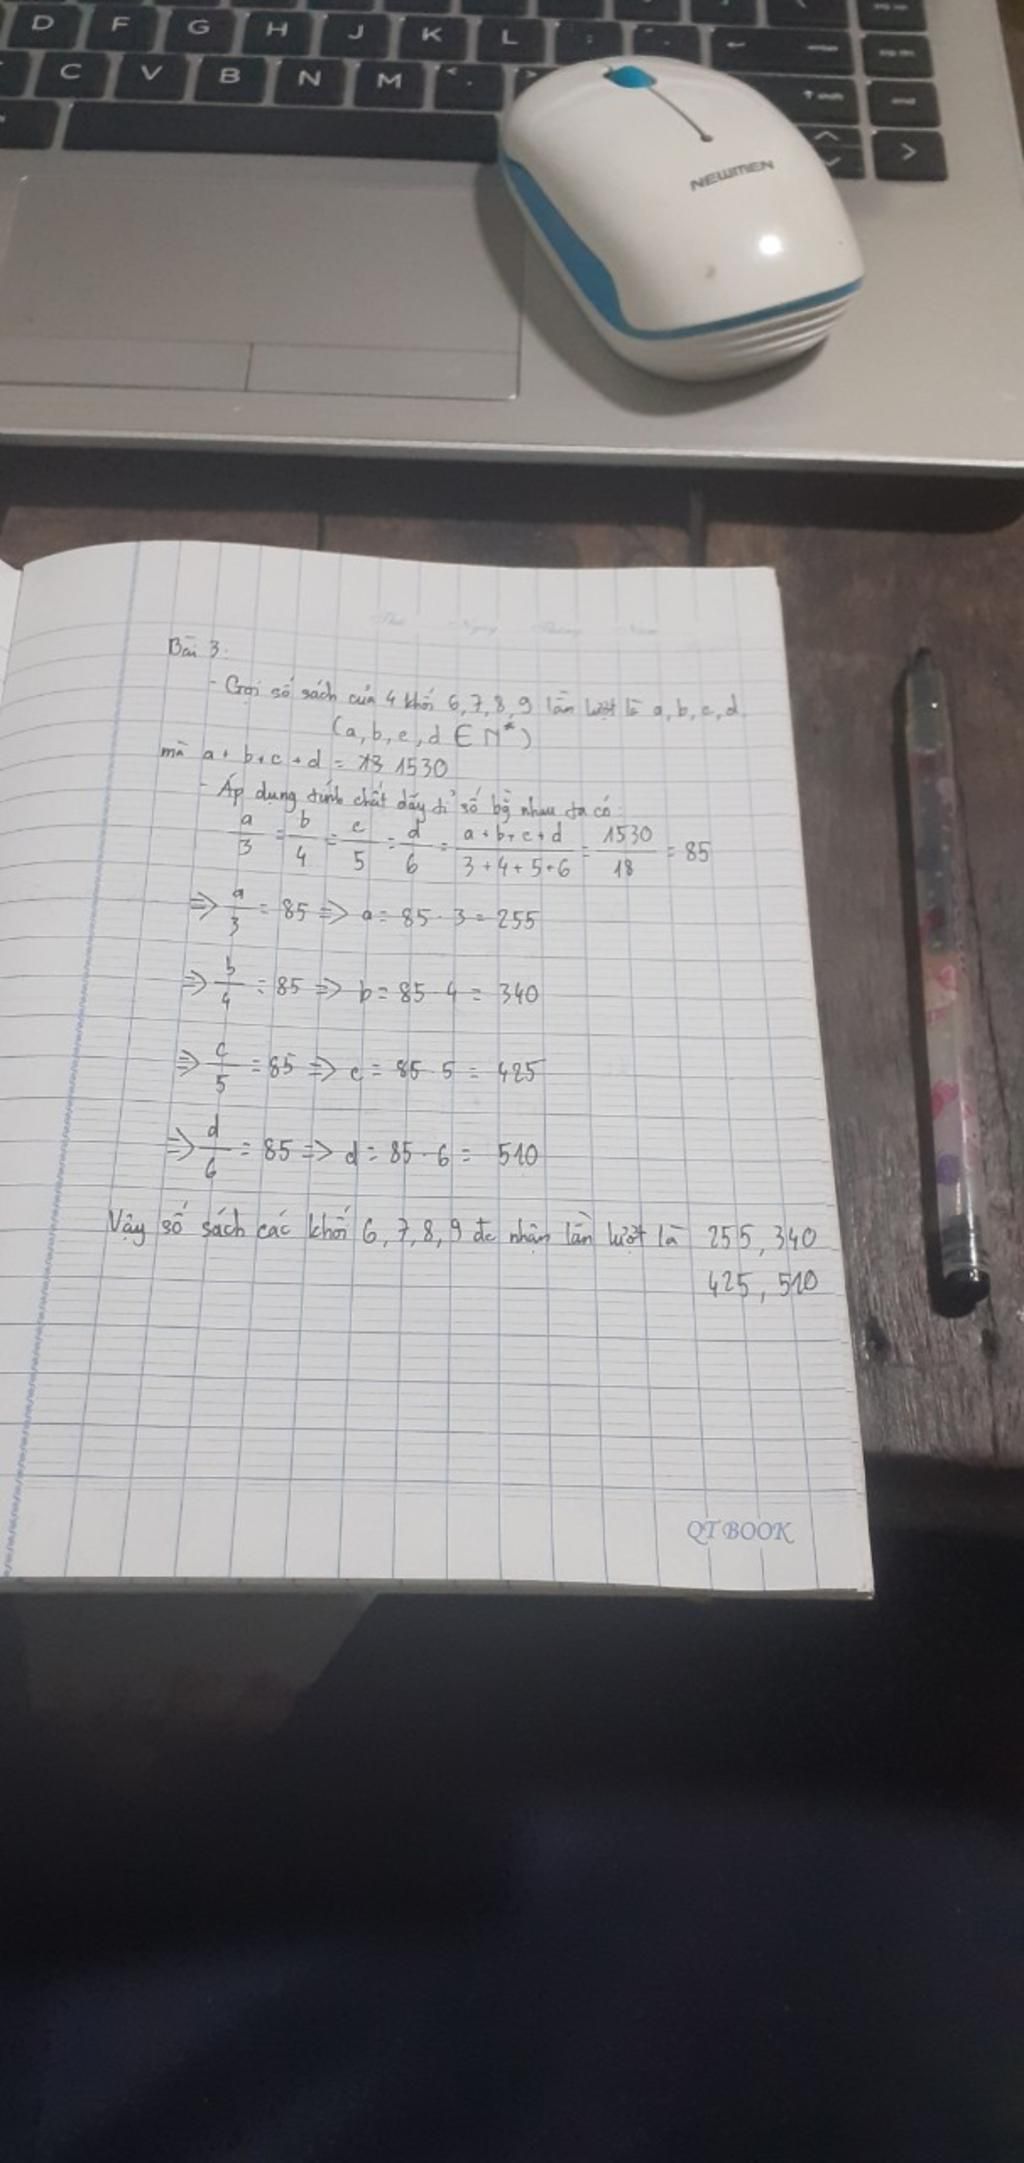 D F G H J K L : "
C V B N M < .
NEWMEN
Thứ Ngày Tháng Năm
Bài 3:
- Gọi số sách của 4 khối 6, 7, 8, 9 lần lượt là a, b, c, d
(a, b, c, d ∈ N*)
mà a + b + c + d = 1530
- Áp dụng tính chất dãy tỉ số bg nhau ta có:
a/3 = b/4 = c/5 = d/6 = (a + b + c + d)/(3 + 4 + 5 + 6) = 1530/18 = 85
=> a/3 = 85 => a = 85 . 3 = 255
=> b/4 = 85 => b = 85 . 4 = 340
=> c/5 = 85 => c = 85 . 5 = 425
=> d/6 = 85 => d = 85 . 6 = 510
Vậy số sách các khối 6, 7, 8, 9 đc nhận lần lượt là 255, 340
425, 510
QT BOOK